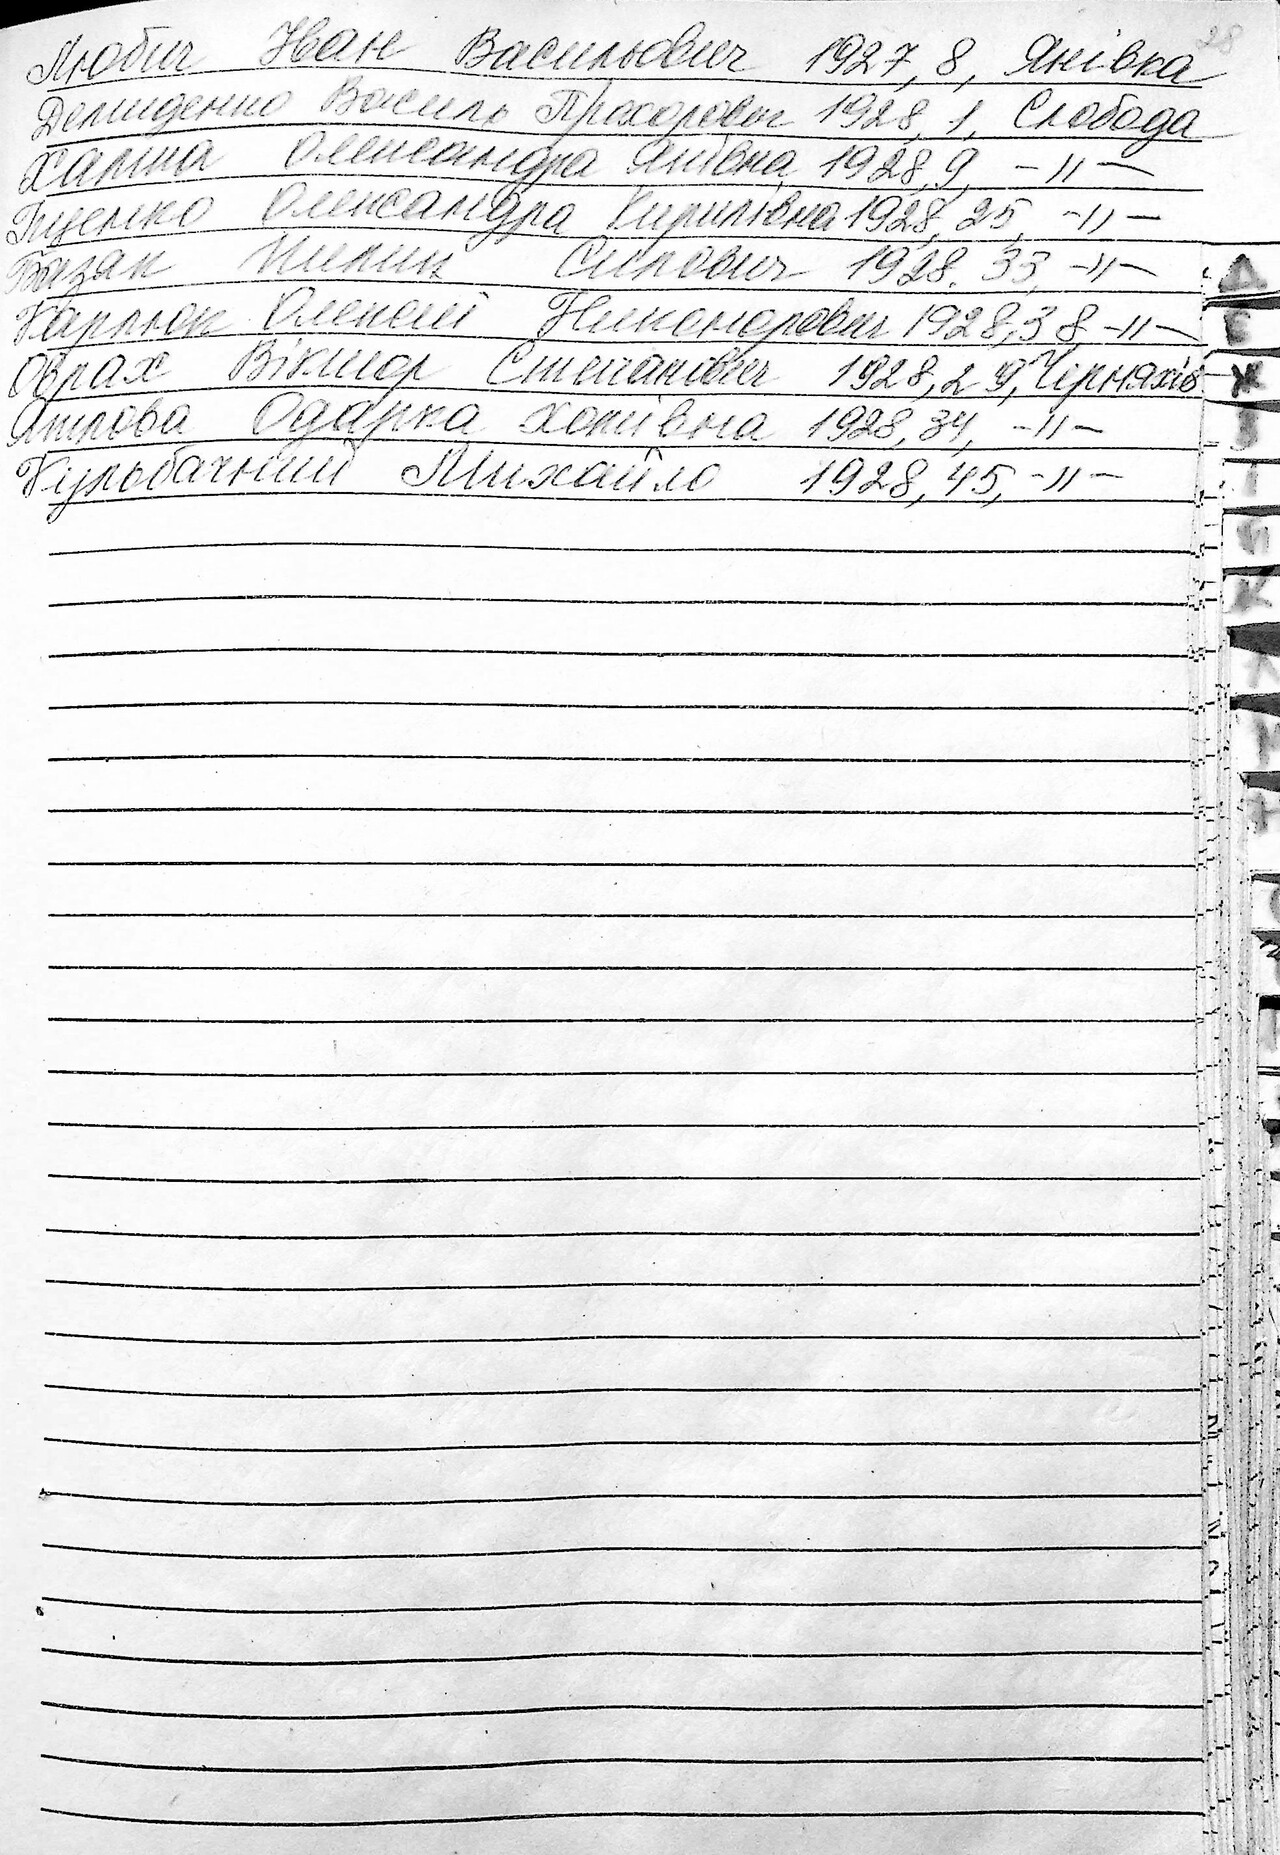 28
Любич Іван Васильович 1927, 8, Янівка
Демиденко Василь Прохорович 1928, 1, Слобода
Халява Олександра Янівна 1928, 9, -"-
Іщенко Олександра Кирилівна 1928, 25, -"-
Базян Силович 1928, 33, -"-
Карпюк Олексій Никонорович 1928, 38, -"-
Оврах Віктор Степанович 1928, 29, Черняхів
Одарка Хомівна 1928, 34, -"-
Кульбачний Михайло 1928, 45, -"-
Д
Е
Ж
З
І
К